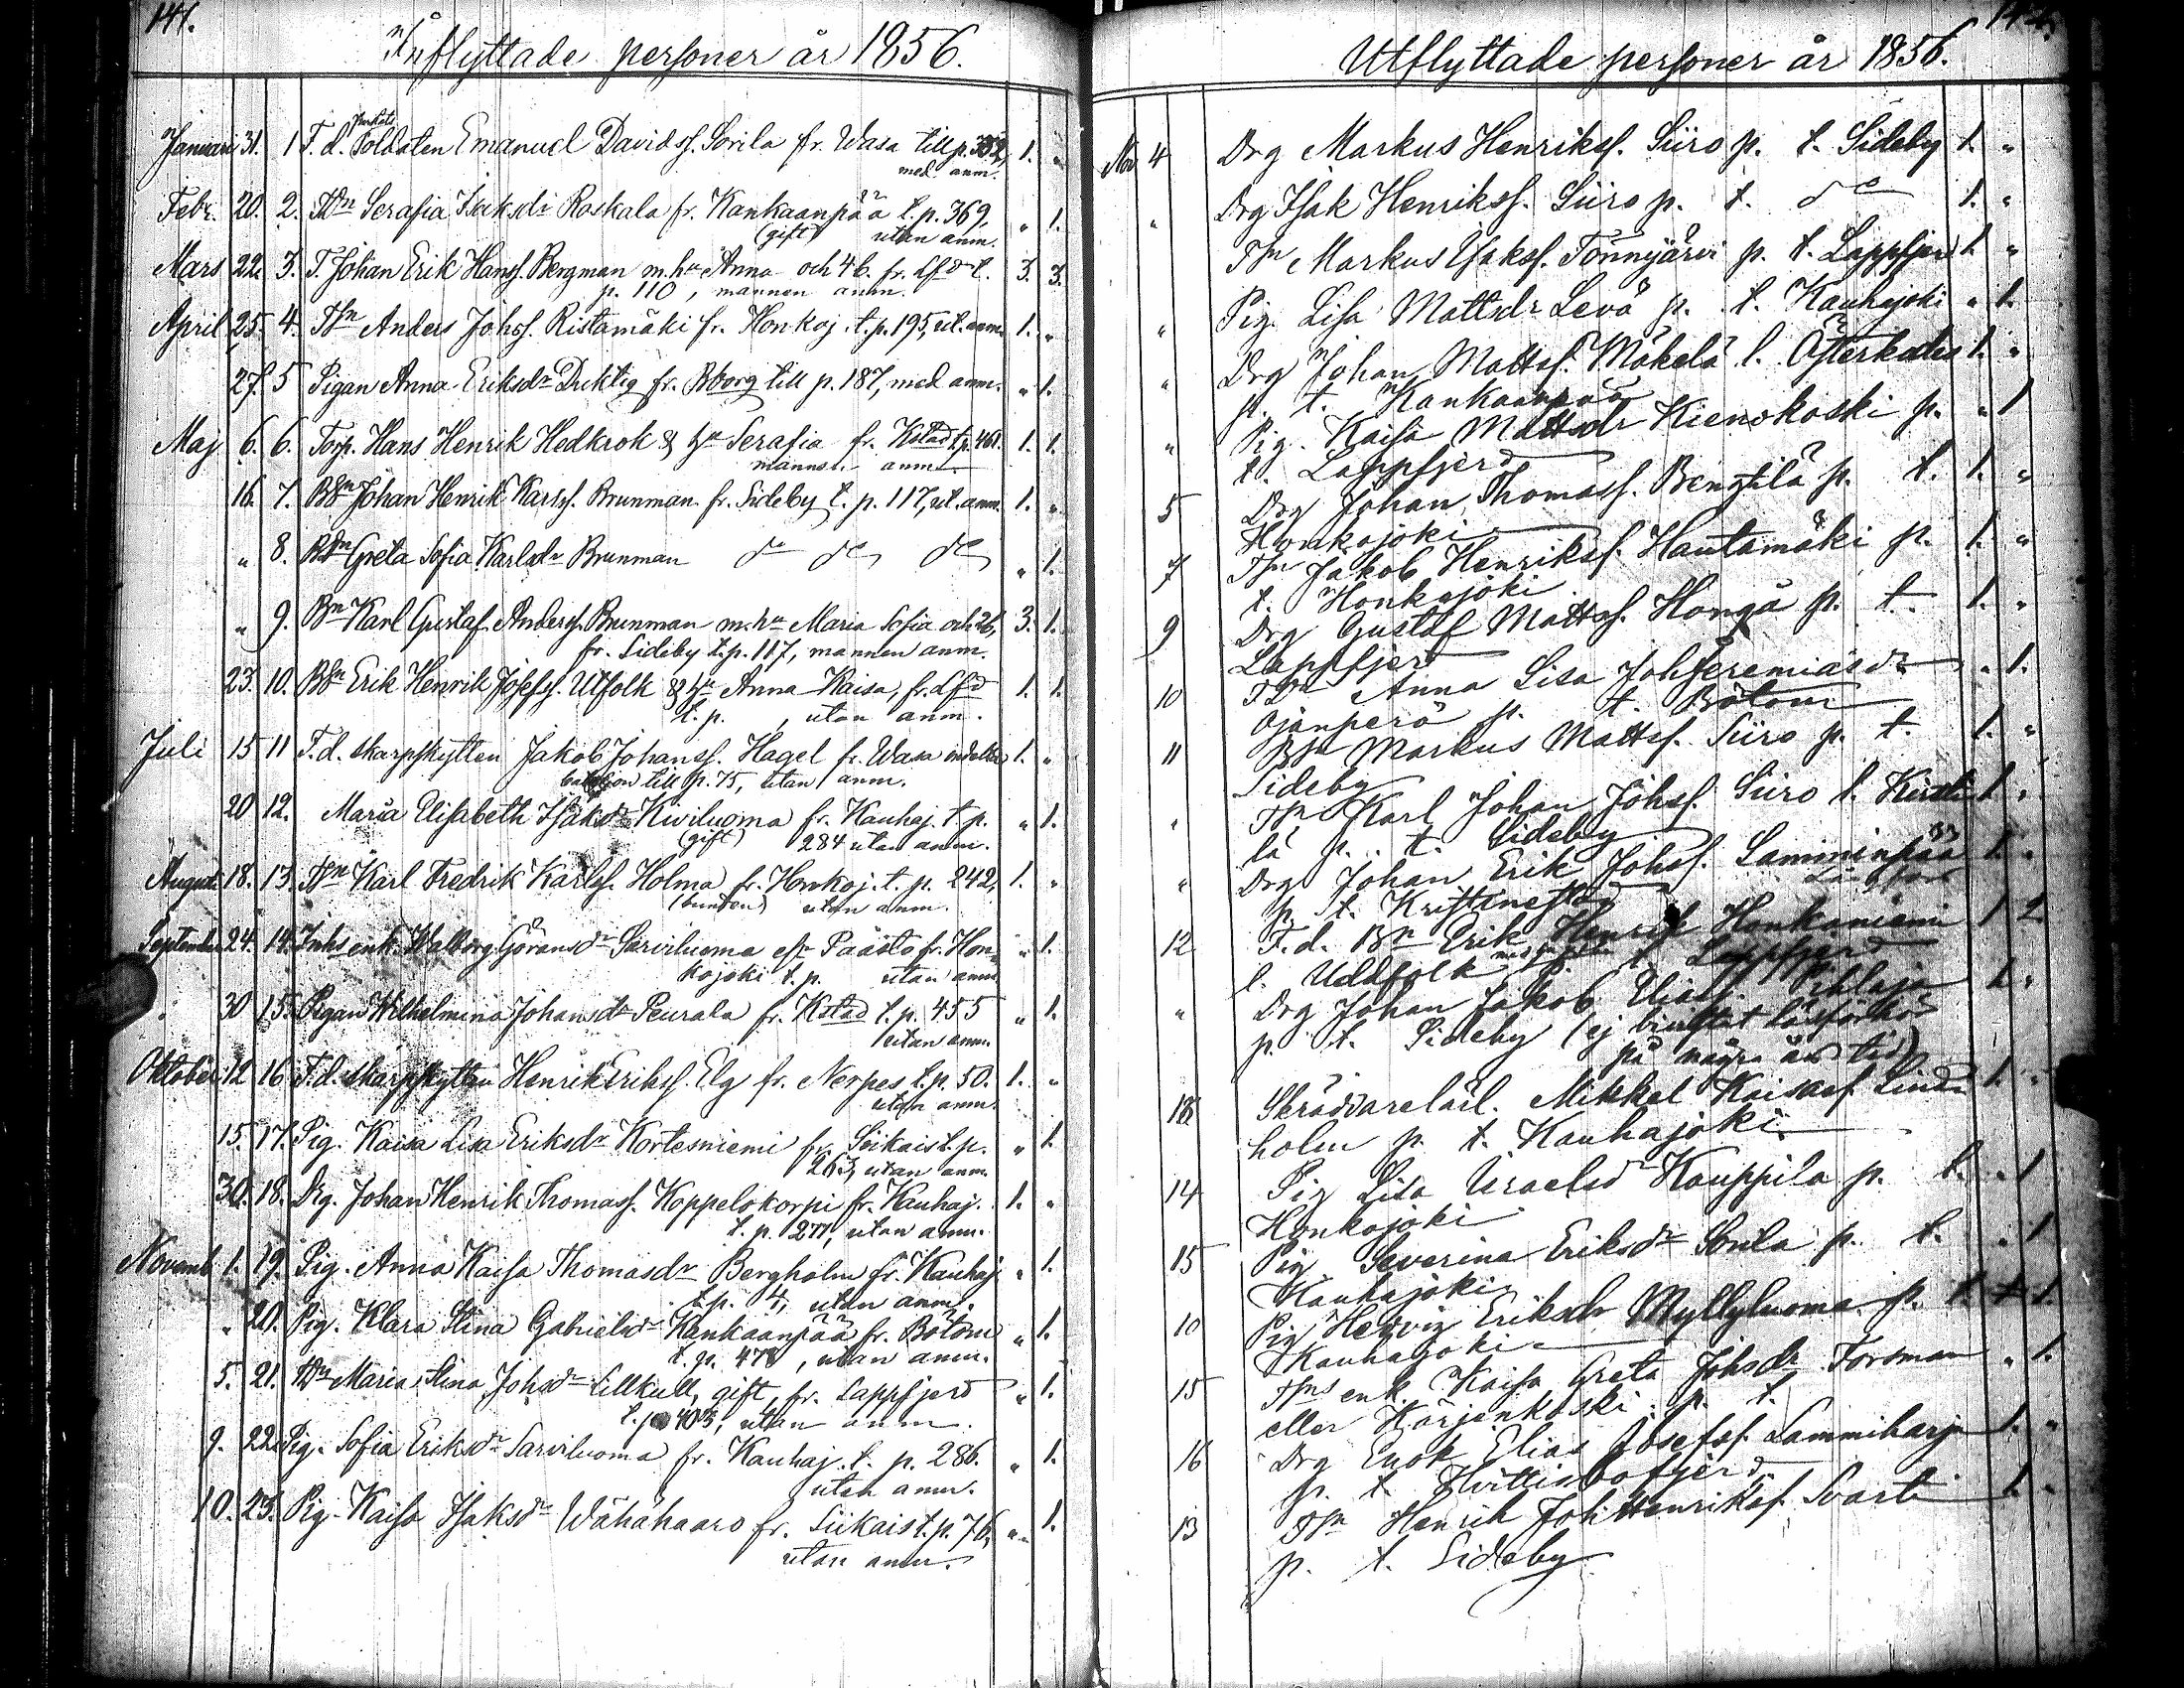 141.
Inflyttade personer år 1856.
Januari 31. 1 F. d. Soldaten Emanuel Davidss. Sorila fr. Wasa till p. 352, 1. "
med anm.
Febr. 20. 2. Tdn Serafia Isaksdr Raskala fr. Kankaanpää t. p. 369, " 1.
(gift) utan anm.
Mars 22. 3. T. Johan Erik Hanss. Bergman m. hu Anna och 4 b. fr. Lfd t. 3. 3.
p. 110, mannen anm.
April 25. 4. Tsn Anders Johss. Ristamäki fr. Honkoj. t. p. 195, ut. anm. 1. "
27. 5 Pigan Anna Eriksdr Duktig fr. Bborg till p. 187, med anm. " 1.
Maj 6. 6. Torp. Hans Henrik Hedkrok & hu Serafia fr. Kstad t. p. 461. 1. 1.
manns. anm.
16. 7. BSn Johan Henrik Karlss. Brunman fr. Sideby t. p. 117, ut. anm. 1. "
" 8. BDn Greta Sofia Karlsdr Brunman do do do " 1.
" 9. Bn Karl Gustaf Anderss. Brunman m. hu Maria Sofia och 2 b, 3. 1.
fr. Sideby t. p. 117, mannen anm.
23. 10. BSn Erik Henrik Josefss. Utfolk & hu Anna Kaisa, fr. Lfd 1. 1.
t. p. , utan anm.
Juli 15 11 F. d. skarpskytten Jakob Johanss. Hagel fr. Wasa indelta 1. "
bataljon till p. 75, utan anm.
20 12. Maria Elisabeth Isaksdr Kiviluoma fr. Kauhaj. t. p. " 1.
(gift) 284 utan anm.
August 18. 13. Tsn Karl Fredrik Karlss. Holma fr. Honkoj. t. p. 242, 1. "
utan anm.
September 24. 14. Inhs enk. Walborg Göransdr Sarviluoma efr Paasto fr. Hon- " 1.
kojoki t. p. utan anm.
30 15. Pigan Wilhelmina Johansdr Peurala fr. Kstad t. p. 455 " 1.
utan anm.
Oktober 12 16 F. d. skarpskytten Henrik Erikss. Elg fr. Nerpes t. p. 50. 1. "
utan anm.
15. 17. Pig. Kaisa Lisa Eriksdr Kortesniemi fr. Siikais t. p. " 1.
263, utan anm.
30. 18. Drg. Johan Henrik Thomass. Koppelokorpi fr. Kauhaj. 1. "
t. p. 277, utan anm.
Novemb 1. 19. Pig. Anna Kaisa Thomasdr Bergholm fr. Kauhaj " 1.
t. p. 4, utan anm.
" 20. Pig. Klara Stina Gabrielsdr Kankaanpää fr. Bötom " 1.
t. p. 478, utan anm.
5. 21. TDn Maria Stina Johsdr Lillkull, gift, fr. Lappfjerd " 1.
t. p. 403, utan anm.
9. 22. Pig. Sofia Eriksdr Sarviluoma fr. Kauhaj. t. p. 286. " 1.
utan anm.
10. 23. Pig. Kaisa Isaksdr Wähähaaro fr. Siikais t. p. 76, " 1.
utan anm.
142.
Utflyttade personer år 1856.
Nov 4 Drg Markus Henrikss. Siiro p. t. Sideby 1. "
" Drg Isak Henrikss. Siiro p. t. do 1. "
Tsn Markus Isakss. Tönnyjärvi p. t. Lappfjerd 1. "
" Pig. Lisa Mattsdr Levä p. t. Kauhajoki " 1.
" Drg Johan Mattss. Mäkelä l. Österkatis 1. "
p. t. Kankaanpää
" Pig. Kaisa Mattsdr Kienokoski p. " 1
t. Lappfjerd
5 Drg Johan Thomass. Bengtilä p. t. 1. "
Honkojoki
7 Tsn Jakob Henrikss. Hautamäki p. 1. "
t. Honkojoki
9 Drg Gustaf Mattss. Hongå p. t. 1. "
Lappfjerd
10 TDn Anna Lisa Joh Jeremiasdr " 1.
Ojanperä p. t. Bötom
11 BSn Markus Mattss. Siiro p. t. 1. "
Sideby
" Tsn Karl Johan Johss. Siiro l. 1. "
lä p. t. Sideby
" Drg Johan Erik Johss. Lamminpää 1. "
p. t. Kristinestad
12 F. d. Bn Erik Henrik Honkaniemi 1 2
l. Uddfolk t. Lappfjerd
" Drg Johan Jakob Eliass. Pihlaja 1. "
p. t. Sideby (ej bivistat läsförhör
på några års tid)
18 Skräddarelärl. Mikkel Kaisass. Lind- 1. "
holm p. t. Kauhajoki
14 Pig Lisa Israelsd Kauppila p. t. " 1
Honkojoki
15 Pig Severina Eriksdr Sorila p. t. " 1
Kauhajoki
10 Pig Hedvig Eriksdr Myllyluoma p. t. 1.
Kauhajoki
15 Tsns enk Kaisa Greta Johsdr Forsman " 1.
eller Härjenkoski p. t.
16 Drg Enok Elias Josefss. Lammiharju 1. "
p. t. Hvittisbofjerd
13 Tsn Henrik Joh Henrikss. Svarti 1. "
p. t. Sideby